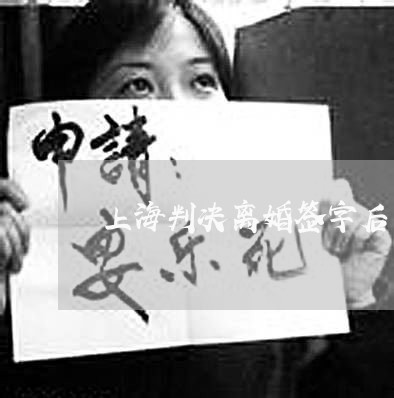 申請：
上海判决离婚签字后
安乐死